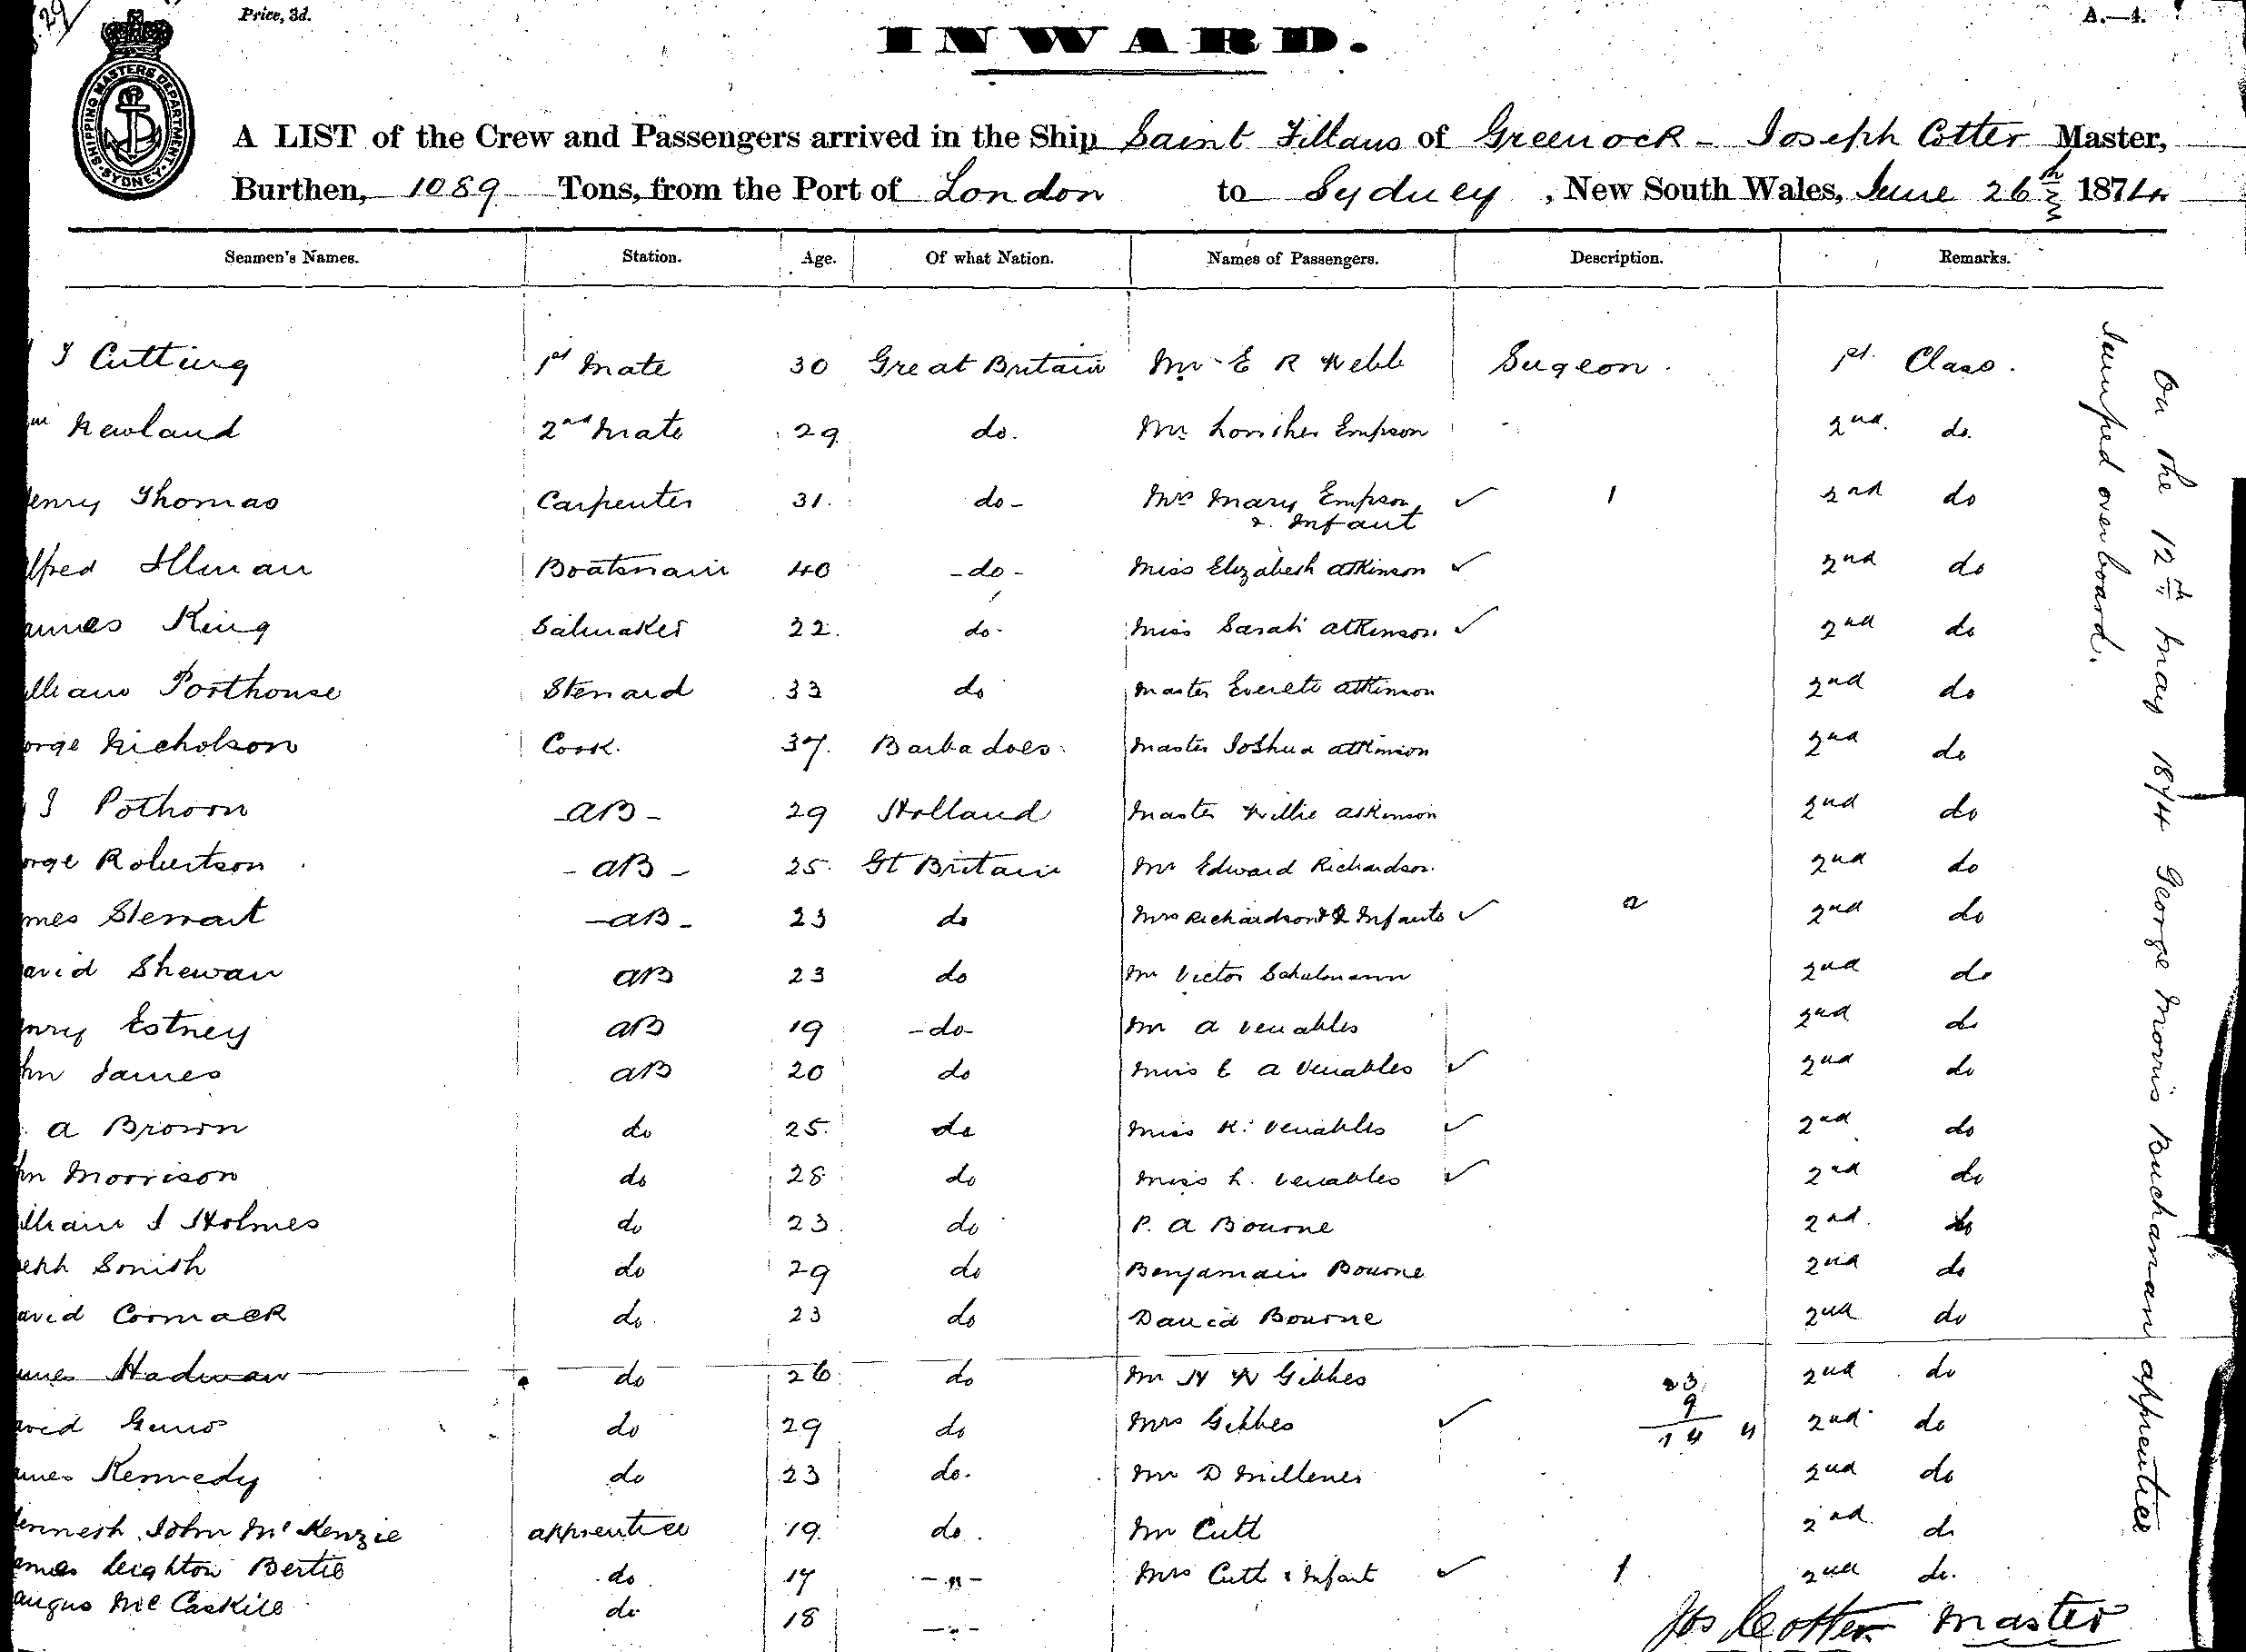 Price, 3d.
A.—4.
INWARD.
SHIPPING MASTERS DEPARTMENT SYDNEY
A LIST of the Crew and Passengers arrived in the Ship Saint Fillans of Greenock - Joseph Cotter Master,
Burthen, 1089 Tons, from the Port of London to Sydney, New South Wales, June 26th 1874
Seamen's Names. Station. Age. Of what Nation. Names of Passengers. Description. Remarks.
J Cutting 1st Mate 30 Great Britain Mr E R Webb Sugeon. 1st Class.
Newland 2nd Mate 29 do. Mr Empson 2nd do.
enry Thomas Carpenter 31. do- Mrs Mary Empson 1 2nd do
& Infant
lfred Illman Boatswain 40 -do- Miss Elizabeth Atkinson 2nd do
ames King Sailmaker 22. do- Miss Sarah Atkinson. 2nd do
lliam Porthouse Steward 33 do Master Everete Atkinson 2nd do
orge Nicholson Cook. 37. Barbadoes. Master Joshua Atkinson 2nd do
J Pothorn -AB- 29 Holland Master Willie Atkinson 2nd do
orge Robertson -AB- 25. Gt Britain Mr Edward Richardson. 2nd do
mes Stewart -AB- 23 do Mrs Richardson & 2 Infants 2 2nd do
avid Shewan AB 23 do Mr Victor Schulmann 2nd do
nry Estney AB 19 -do- Mr A Venables 2nd do
hn James AB 20 do Miss E A Venables 2nd do
A Brown do 25. do Miss K. Venables 2nd do
hn Morrison do 28 do Miss L. Venables 2nd do
lliam J Holmes do 23. do P. A Bourne 2nd. do
seph Smith do 29 do Benjamain Bourne 2nd do
avid Cormack do. 23 do David Bourne 2nd do
ames Hadman do 26. do Mr H W Gibbes 23 2nd do
9
avid Gunn do 29 do Mrs Gibbes 14 4 2nd do
ames Kennedy do 23 do. Mr D Millener 2nd do
enneth John McKenzie apprentice 19. do. Mr Cutt 2nd do
ames Leighton Bertie do. 17 -"- Mrs Cutt & Infant 1 2nd do.
angus McCaskill do. 18 -"-
Jos Cotter Master
On the 12th May 1874 George Morris Buchanan apprentice
Jumped overboard.